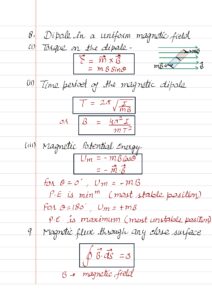 8. Dipole in a uniform magnetic field
(i) Torque on the dipole -
τ⃗ = m⃗ × B⃗
= mB sinθ
mB⃗
(ii) Time period of the magnetic dipole
T = 2π √(I/mB)
or B = 4π²I/mT²
(iii) Magnetic Potential Energy
Um = -mB cosθ
= -m⃗·B⃗
For θ = 0°, Um = -mB
P.E is minm (most stable position)
For θ = 180°, Um = +mB
P.E is maximum (most unstable position)
9 Magnetic flux through any close surface
∮ B⃗·ds⃗ = 0
B → magnetic field